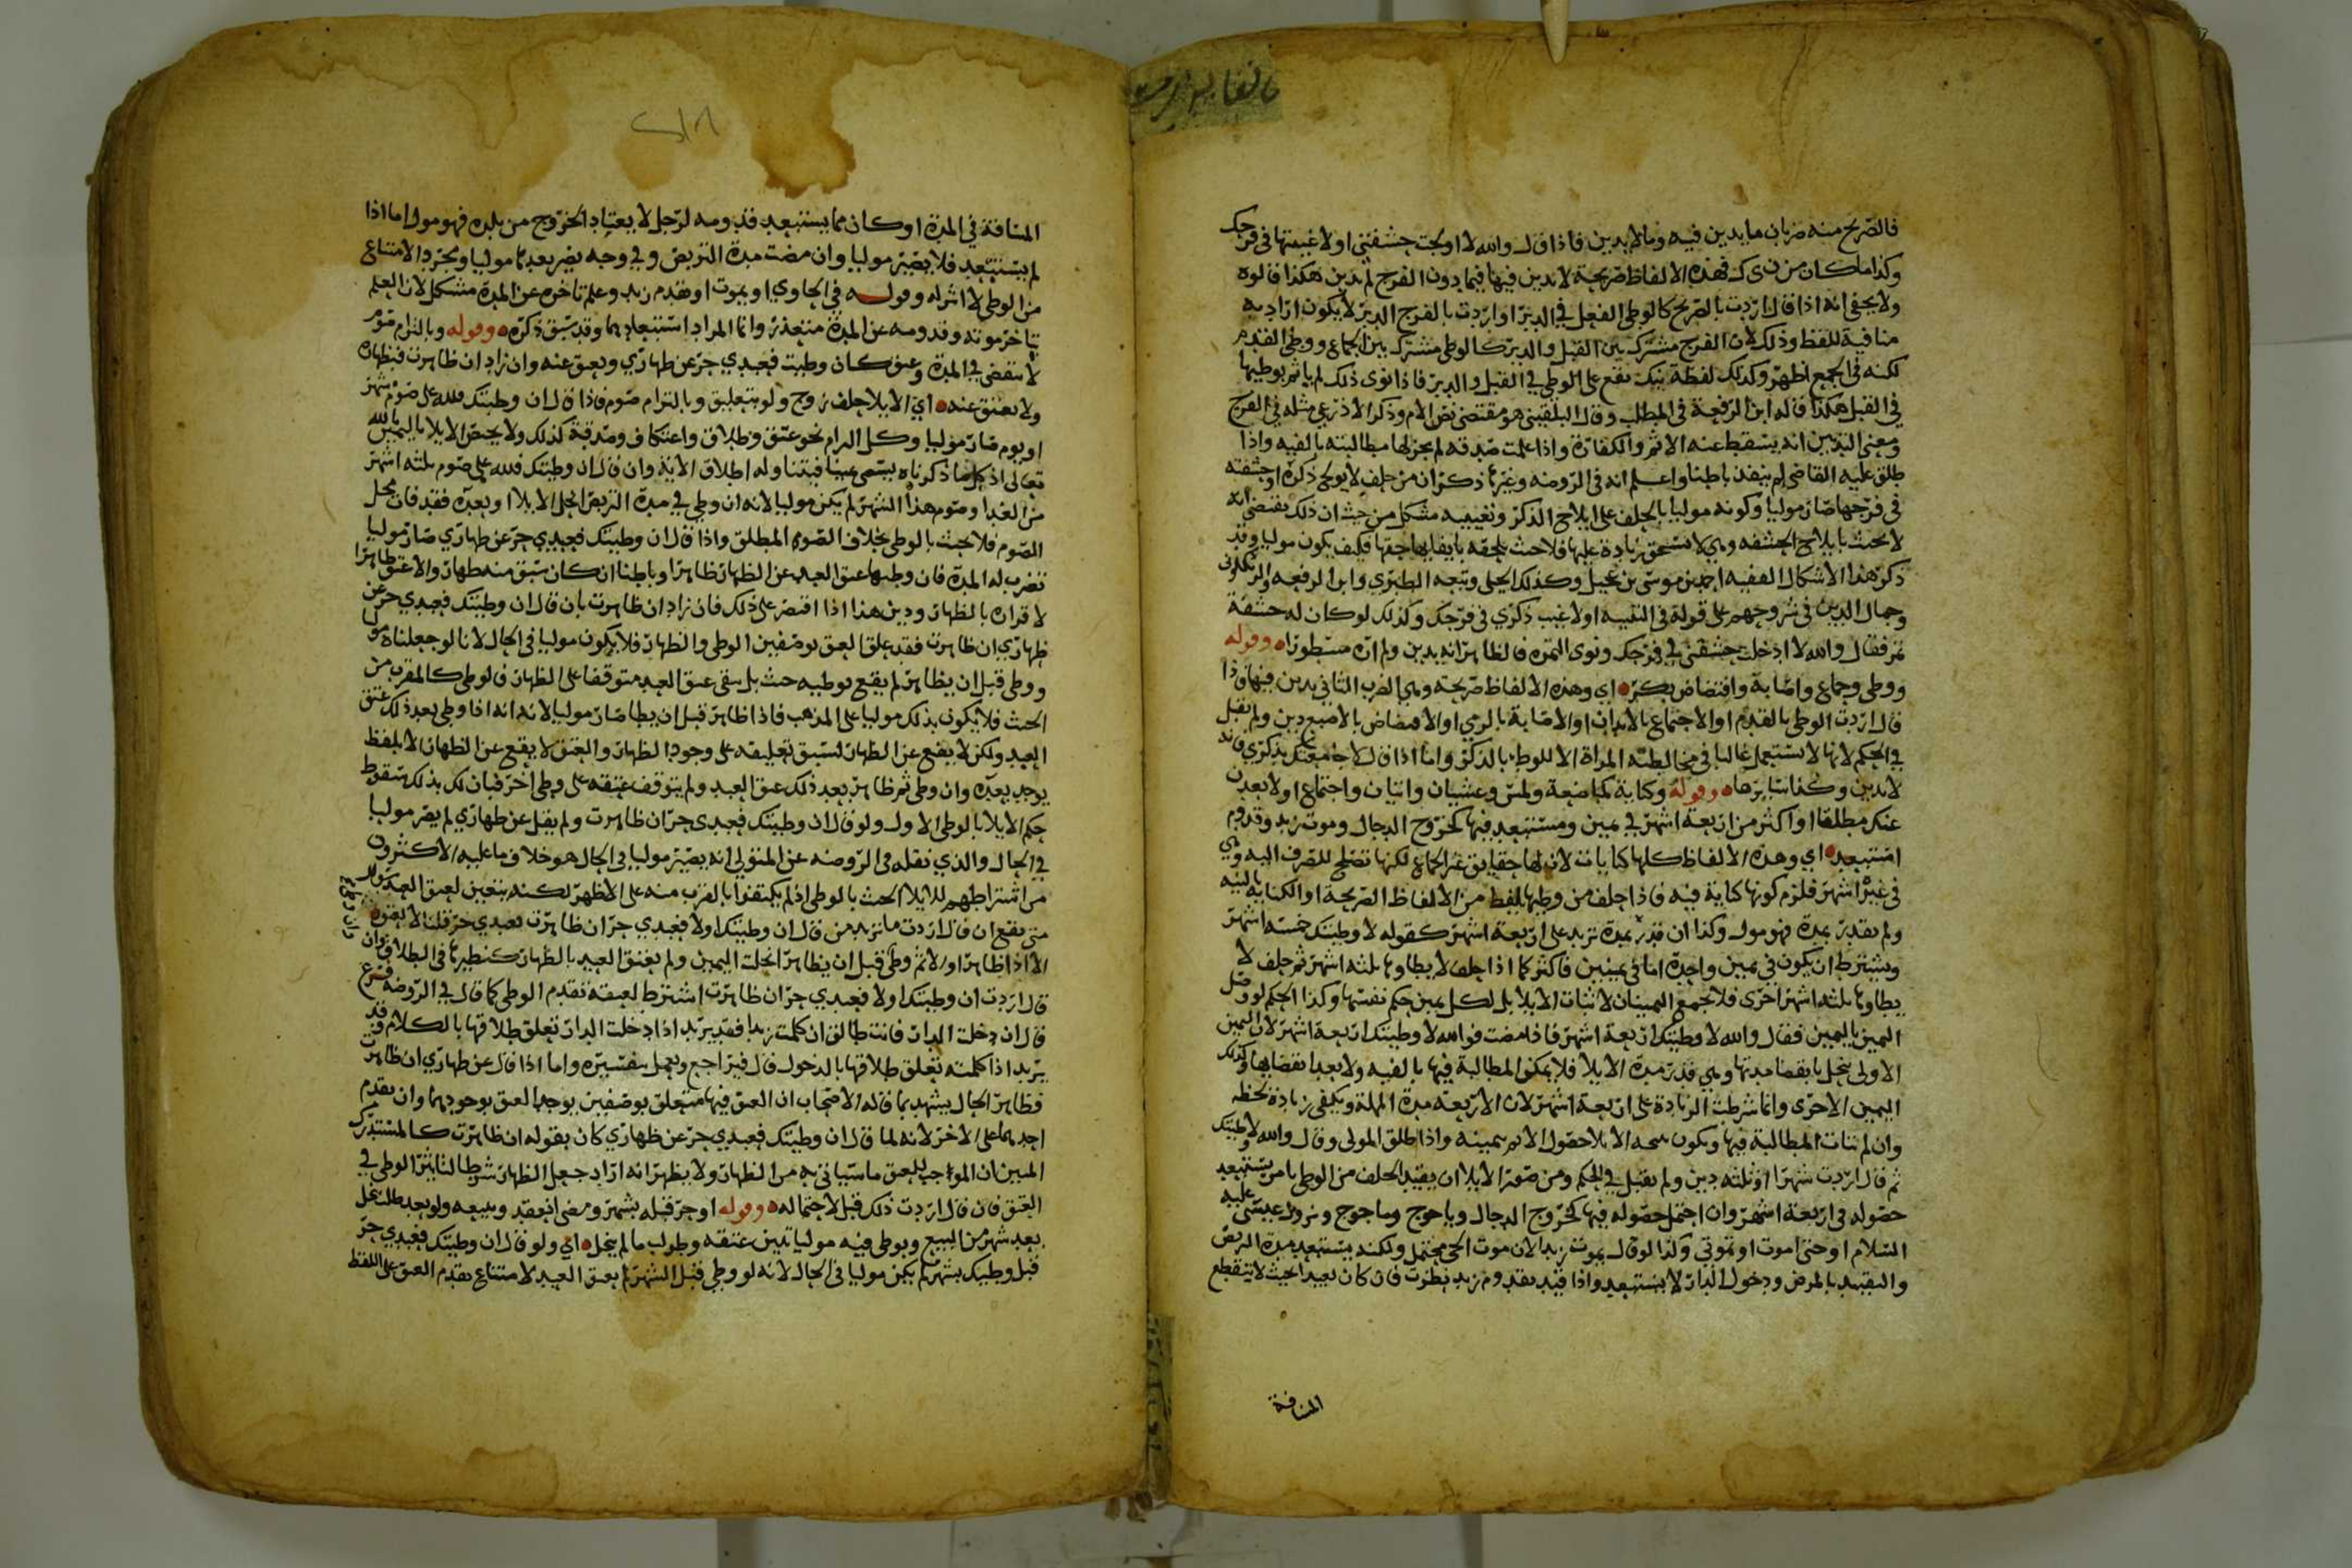 فالصريح منه ضربان ما يدين فيه وما لا يدين فاذا قال والله لا اولجت حشفتي او لا غيبتها في فرجك
وكذا ما كان من ن ى ك فهذه الالفاظ صريحة لا يدين فيها فيما دون الفرج لم يدين هكذا قالوه
ولا يخفى انه اذا قال اردت بالصريح كالوطى الفعل في الدبر او اردت بالفرج الدبر لا يكون اراد به
منافية للفظ وذلك لان الفرج مشترك بين القبل والدبر كالوطى مشترك بين الجماع ووطى القدم
لكنه في الجمع اظهر وكذلك لفظة نيك تقع على الوطى في القبل والدبر فاذا نوى ذلك لم ياثم بوطيها
في القبل هكذا قاله ابن الرفعة في المطلب وقال البلقينى هو مقتضى نص الام وذكر الاذرعى مثله في الفرج
ومعنى التديين انه يسقط عنه الاثم والكفارة واذا علمت صدقه لم يجز لها مطالبته بالفيه واذا
طلق عليه القاضى لم ينفذ باطنا واعلم انه في الروضه وغيرها ذكر ان من حلف لا يولج ذكره او حشفته
في فرجها صار موليا وكونه موليا بالحلف على ايلاج الذكر وتغييبه مشكل من حيث ان ذلك يقتضى انه
لا يحنث بايلاج الحشفه وهي لا تستحق زيادة عليها فلا حنث يلحقه بايفايها حقها فكيف يكون موليا وقد
ذكر هذا الاشكال الفقيه احمد بن موسى بن عجيل وكذلك الجيلى وتبعه الطبري وابن الرفعه والزنكلونى
وجمال الدين في شروحهم على قوله في التنبيه او لا غيب ذكري في فرجك وكذلك لو كان له حشفة
تمر فقال والله لا ادخلت حشفتي في فرجك ونوى التمره فالظاهر انه يدين ولم اره مسطورا ه وقوله
ووطى وجماع واصابة وافتضاض بكر ه اي وهذه الالفاظ صريحة وهي الضرب الثاني يدين فيها فاذا
قال اردت الوطى بالقدم او الاجتماع بالابدان او الاصابة بالرمي او الافتضاض بالاصبع دين ولم يقبل
في الحكم لانها لا تستعمل غالبا في مخالطة المراة الا للوطء بالذكر واما اذا قال لا جامعتك بذكري فانه
لا يدين وكذا سايرها ه وقوله وكناية كمباضعة ولمس وغشيان واتيان واجتماع او لا بعدن
عنك مطلقا او اكثر من اربعة اشهر في يمين ومستبعد فيها كخروج الدجال وموت زيد وقدوم
استبعد ه اي وهذه الالفاظ كلها كنايات لان لها حقايق غير الجماع لكنها تصلح للصرف اليه وهي
في غيره اشهر فلزم كونها كناية فيه فاذا حلف من وطيها بلفظ من الالفاظ الصريحة او الكناية بالنيه
ولم يقدر بمدة فهو مول وكذا ان قدر بمدة تزيد على اربعة اشهر كقوله لا وطيتك خمسه اشهر
ويشترط ان يكون في يمين واحدة اما في يمينين فاكثر كما اذا حلف لا يطاوها ثلثه اشهر ثم حلف لا
يطاوها ثلثه اشهر اخرى فلا تجمع اليمينان لاثبات الايلا بل لكل يمين حكم نفسها وكذا الحكم لو وصل
اليمين باليمين فقال والله لا وطيتك اربعة اشهر فاذا مضت فوالله لا وطيتك اربعة اشهر لان اليمين
الاولى تنحل بانقضا مدتها وهي قدر مدة الايلا فلا يمكن المطالبة فيها بالفيه ولا بعد انقضايها وكذلك
اليمين الاخرى وانما شرطت الزيادة على اربعة اشهر لان الاربعة مدة المهلة ويكفي زيادة لحظه
وان لم تتات المطالبة فيها ويكون الايلا حصول الاثم بيمينه واذا طلق المولى وقال والله لا وطيتك
ثم قال اردت شهرا او ثلثه دين ولم يقبل في الحكم ومن صور الايلا ان يقيد الحلف من الوطى بامر يستبعد
حصوله في اربعة اشهر وان احتمل حصوله فيها كخروج الدجال وياجوج وماجوج ونزول عيسى عليه
السلام او حتى اموت او تموتي وكذا لو قال يموت زيد لان موت الحي محتمل ولكنه يستبعد مدة التربص
والتقييد بالمرض ودخول الدار لا يستبعد واذا قيد بقدوم زيد نظرت فان كان بعيدا بحيث لا تنقطع
المسافة
المسافة في المدة او كان مما يستبعد قدومه لرجل لا يعتاد الخروج من بلده فهو مول اما اذا
لم يستبعد فلا يصير موليا وان مضت مدة التربص وفي وجه يصير بعدها موليا ومجرد الامتناع
من الوطى لا اثر له وقوله في الحاوي او بموت او بقدم زيد وعلم تاخره عن المدة مشكل لان العلم
بتاخر موته وقدومه عن المدة متعذر وانما المراد استبعادها وقد سبق ذكره ه وقوله وبالتزام صوم
لا ينقضي في المدة وعتق كان وطيت فعبدي حر عن ظهاري ويعتق عنه وان زاد ان ظاهرت فبظهاره
ولا يعتق عنه ه اي الايلا حلف زوج ولو بتعليق وبالتزام صوم فاذا قال ان وطيتك فلله على صوم شهر
او يوم صار موليا وكل الزام نحو عتق وطلاق واعتكاف وصدقة كذلك ولا يختص الايلا باليمين بالله
تعالى اذ كل ما ذكرناه يسمى يمينا فيتناوله اطلاق الاية وان قال ان وطيتك فلله على صوم ثلثه اشهر
من الغد او صوم هذا الشهر لم يكن موليا لانه ان وطي في مدة التربص انحل الايلا او بعده فقد فات محل
الصوم فلا يحنث بالوطى بخلاف الصوم المطلق واذا قال ان وطيتك فعبدي حر عن ظهاري صار موليا
تضرب له المدة فان وطيها عتق العبد عن الظهار ظاهرا وباطنا ان كان سبق منه ظهار والا عتق ظاهرا
لاقراره بالظهار ودين هذا اذا اقتصر على ذلك فان زاد ان ظاهرت بان قال ان وطيتك فعبدي حر عن
ظهاري ان ظاهرت فقد علق العتق بوصفين الوطى والظهار فلا يكون موليا في الحال لانا لو جعلناه موليا
ووطى قبل ان يظاهر لم يقع بوطيه حنث بل يبقى عتق العبد متوقفا على الظهار فالوطى كالمقرب من
الحنث فلا يكون بذلك موليا على المذهب فاذا ظاهر قبل ان يطا صار موليا لانه اذا وطى بعد ذلك عتق
العبد ولكن لا يقع عن الظهار لسبق تعليقه على وجود الظهار والعتق لا يقع عن الظهار الا بلفظ
يوجد بعده وان وطى ثم ظاهر بعد ذلك عتق العبد ولم يتوقف عتقه على وطى اخر فبان لك بذلك سقوط
حكم الايلا بالوطى الاول ولو قال ان وطيتك فعبدى حر ان ظاهرت ولم يقل عن ظهاري لم يصر موليا
في الحال والذي نقله في الروضه عن المتولي انه يصير موليا في الحال هو خلاف ما عليه الاكثرون
من اشتراطهم للايلا الحنث بالوطى اذ لم يكتفوا بالقرب منه على الاظهر لكنه يتعين لعتق العبد
متى يقع ان قال اردت ما تزيد من قال ان وطيتك اولا فعبدي حر ان ظاهرت فعبدي حر قلنا لا يعتق
الا اذا ظاهر اولا ثم وطئ قبل ان يظاهر انحلت اليمين ولم يعتق العبد بالظهار كنظيرها في الطلاق وان
قال اردت ان وطيتك اولا فعبدي حر ان ظاهرت اشترط لعتقه تقدم الوطى كما قال في الروضه فرع
قال ان دخلت الدار فانت طالق ان كلمت زيدا فقد يريد اذا دخلت الدار تعلق طلاقها بالكلام وقد
يريد اذا كلمته تعلق طلاقها بالدخول قال فيراجع ويعمل بتفسيره واما اذا قال عن ظهاري ان ظاهرت
فظاهر الحال يشهد بما قاله الاصحاب ان العتق فيها متعلق بوصفين يوجد العتق بوجودهما وان تقدم
احدهما على الاخر لانه لما قال ان وطيتك فعبدي حر عن ظهاري كان بقوله ان ظاهرت كالمستدرك
المبين ان الموجب للعتق ما سياتي به من الظهار ولا يظهر انه اراد جعل الظهار شرطا لتاثير الوطى في
العتق فان قال اردت ذلك قبل لاحتماله ه وقوله او حر قبله بشهر ومضى انعقد وببيعه ولو بعد طلب تحل
بعد شهر من البيع وبوطى فيه موليا تبين عتقه وطولب ما لم ينحل ه اي ولو قال ان وطيتك فعبدي حر
قبل وطيك بشهر لم يكن موليا في الحال لانه لو وطي قبل الشهر لم يعتق العبد لامتناع تقدم العتق على اللفظ